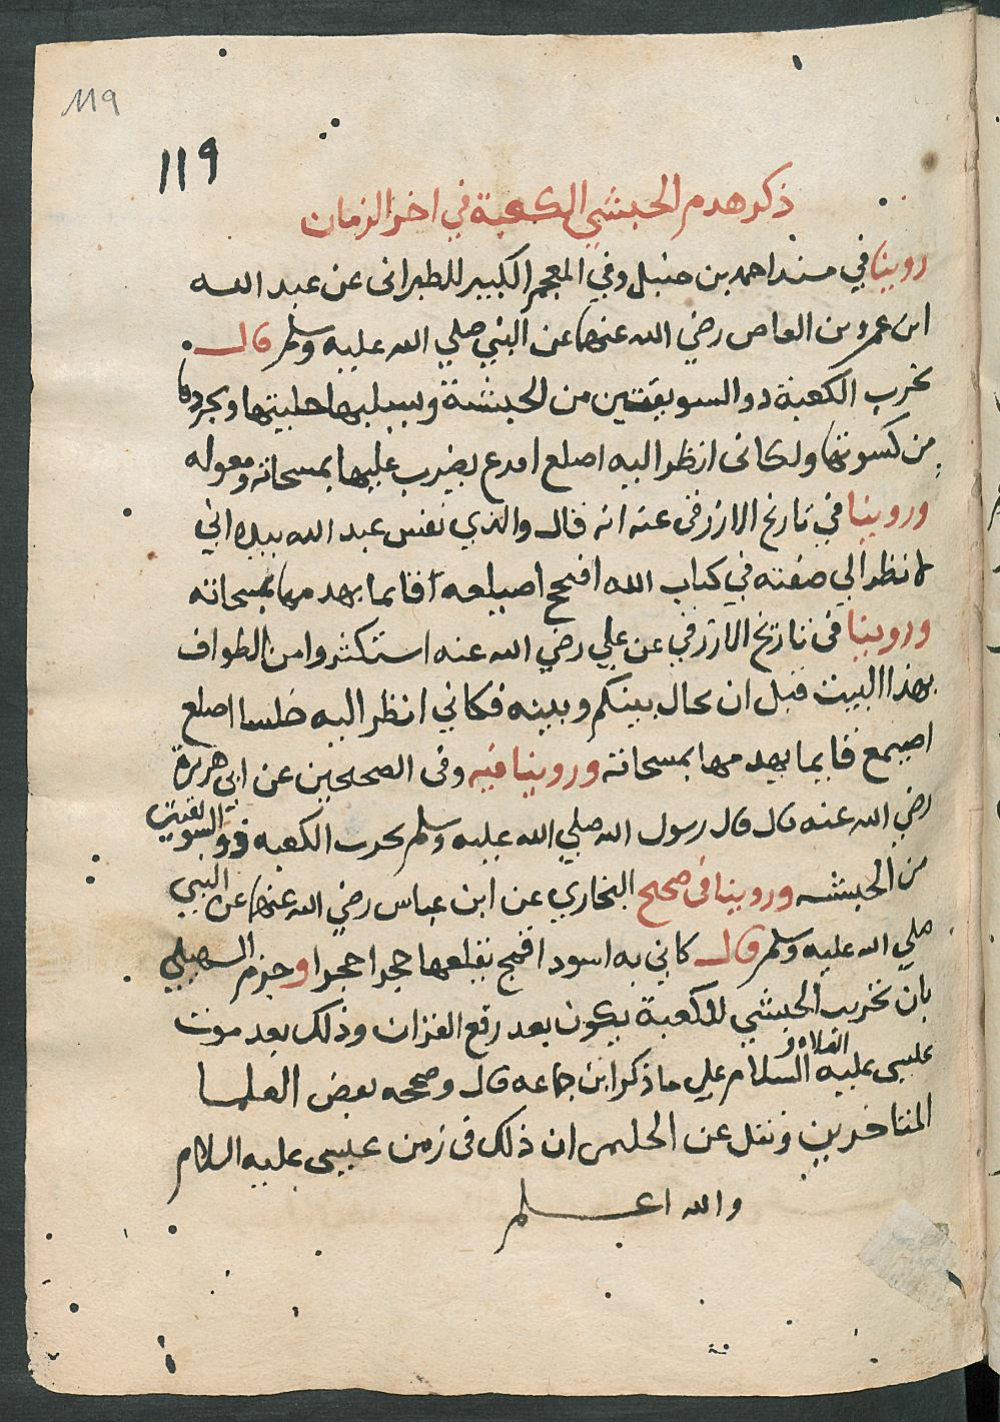 119
119
ذكر هدم الحبشي الكعبة في اخر الزمان
روينا في مسند احمد بن حنبل وفي المعجم الكبير للطبراني عن عبد الله
ابن عمرو بن العاص رضي الله عنهما عن النبي صلي الله عليه وسلم قال
يخرب الكعبة ذو السويقتين من الحبشة ويسلبها حليتها ويجردها
من كسوتها ولكاني انظر اليه اصلع افدع يضرب عليها بمسحاته ومعوله
وروينا في تاريخ الازرقي عنه انه قال والذي نفس عبد الله بيده اني
لانظر الي صفته في كتاب الله افحج اصيلعه قايما يهدمها بمسحاته
وروينا في تاريخ الازرقي عن علي رضي الله عنه استكثروا من الطواف
بهذا البيت قبل ان يحال بينكم وبينه فكاني انظر اليه اصلع
اصيمع قايما يهدمها بمسحاته وروينا فيه وفي الصحيحين عن ابي هريرة
رضي الله عنه قال قال رسول الله صلي الله عليه وسلم يخرب الكعبه ذو السويقتين
من الحبشه وروينا في صحيح البخاري عن ابن عباس رضي الله عنهما عن النبي
صلي الله عليه وسلم قال كاني به اسود افحج يقلعها حجرا حجرا وجزم السهيلي
بان تخريب الحبشي للكعبة يكون بعد رفع القران وذلك بعد موت
عيسى عليه الصلاة و السلام علي ما ذكر ابن جماعه قال وصححه بعض العلما
المتاخرين ونقل عن الحليمي ان ذلك في زمن عيسى عليه السلام
والله اعلم